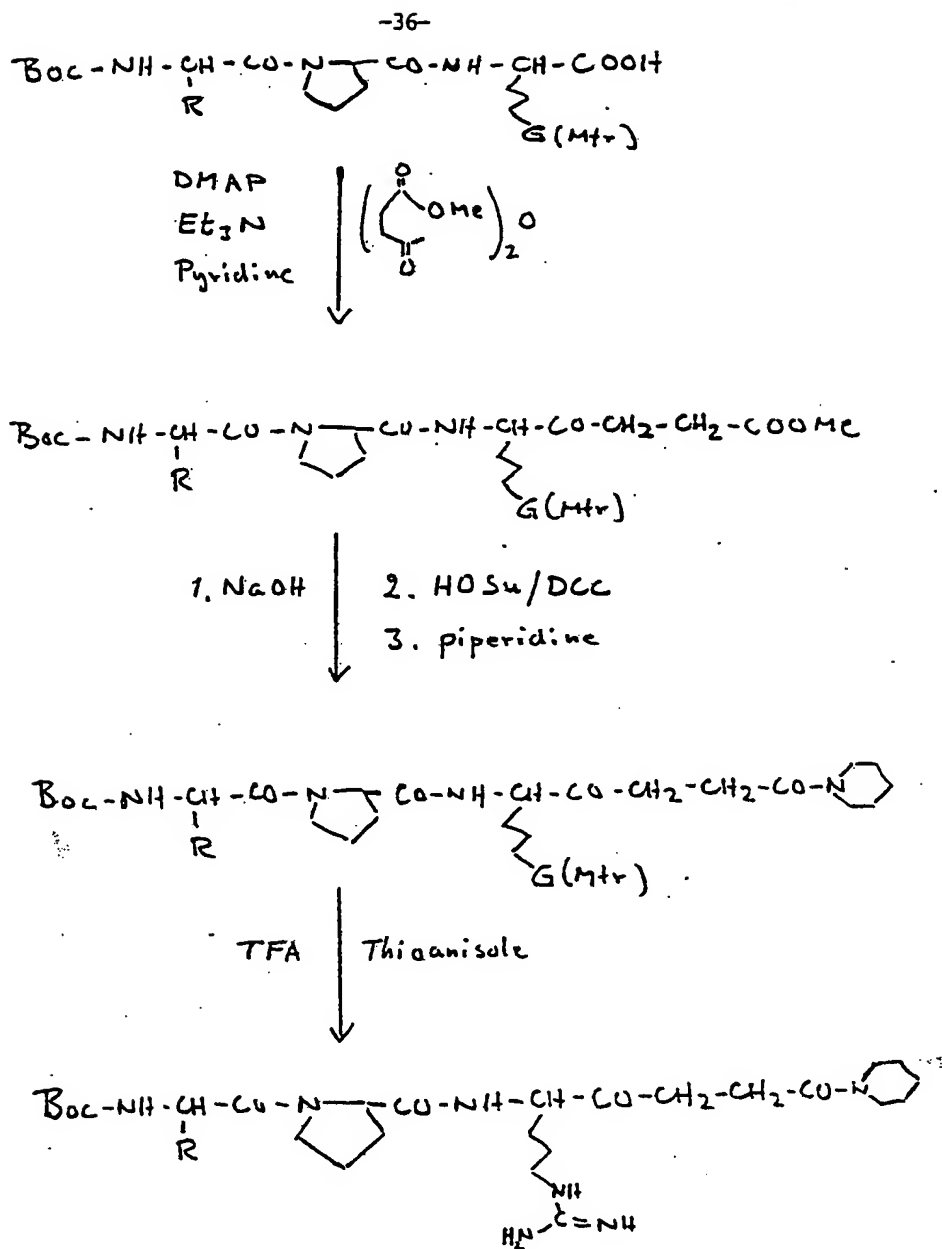 -36-
Boc-NH-CH-CO-N CO-NH-CH-COOH
R
G(Mtr)
DMAP
Et3N
Pyridine
O
OMe
O
2
O
Boc-NH-CH-CO-N CO-NH-CH-CO-CH2-CH2-COOMe
R
G(Mtr)
1. NaOH
2. HOSu/DCC
3. piperidine
Boc-NH-CH-CO-N CO-NH-CH-CO-CH2-CH2-CO-N
R
G(Mtr)
TFA
Thioanisole
Boc-NH-CH-CO-N CO-NH-CH-CO-CH2-CH2-CO-N
R
NH
H2N C=NH